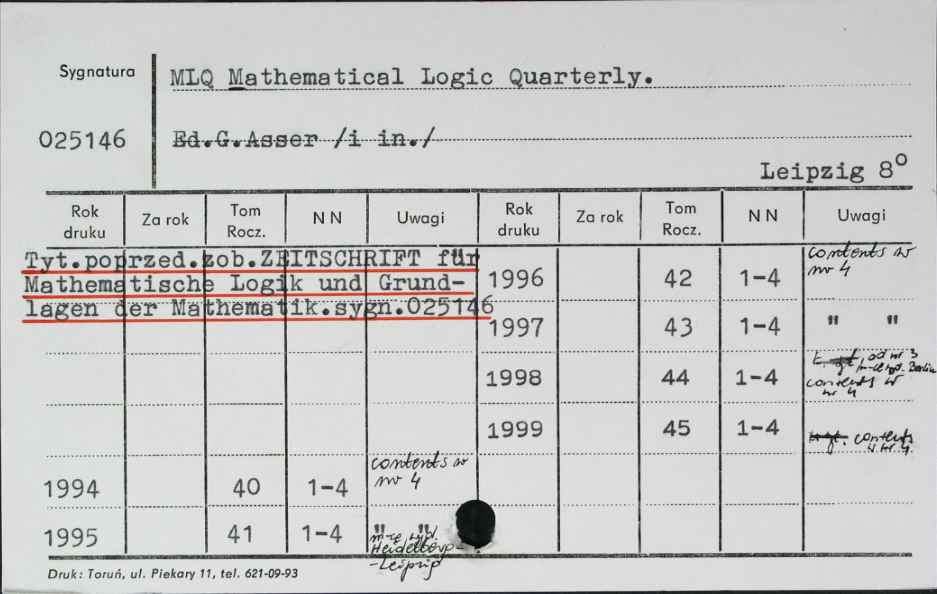 Sygnatura
MLQ Mathematical Logic Quarterly.
025146
Ed.G.Asser /i in./
Leipzig 8°
Rok druku Za rok Tom Rocz. N N Uwagi Rok druku Za rok Tom Rocz. N N Uwagi
Tyt.poprzed.zob.ZEITSCHRIFT für
Mathematische Logik und Grund-
lagen der Mathematik.sygn.025146
1996 42 1-4 contents w nr 4
1997 43 1-4 " "
1998 44 1-4 od nr 3
Berlin
contents w
nr 4
1999 45 1-4 contents
w nr 4.
1994 40 1-4 contents w nr 4
1995 41 1-4 " "
m-ce wyd.
Heidelberg-
-Leipzig
Druk: Toruń, ul. Piekary 11, tel. 621-09-93